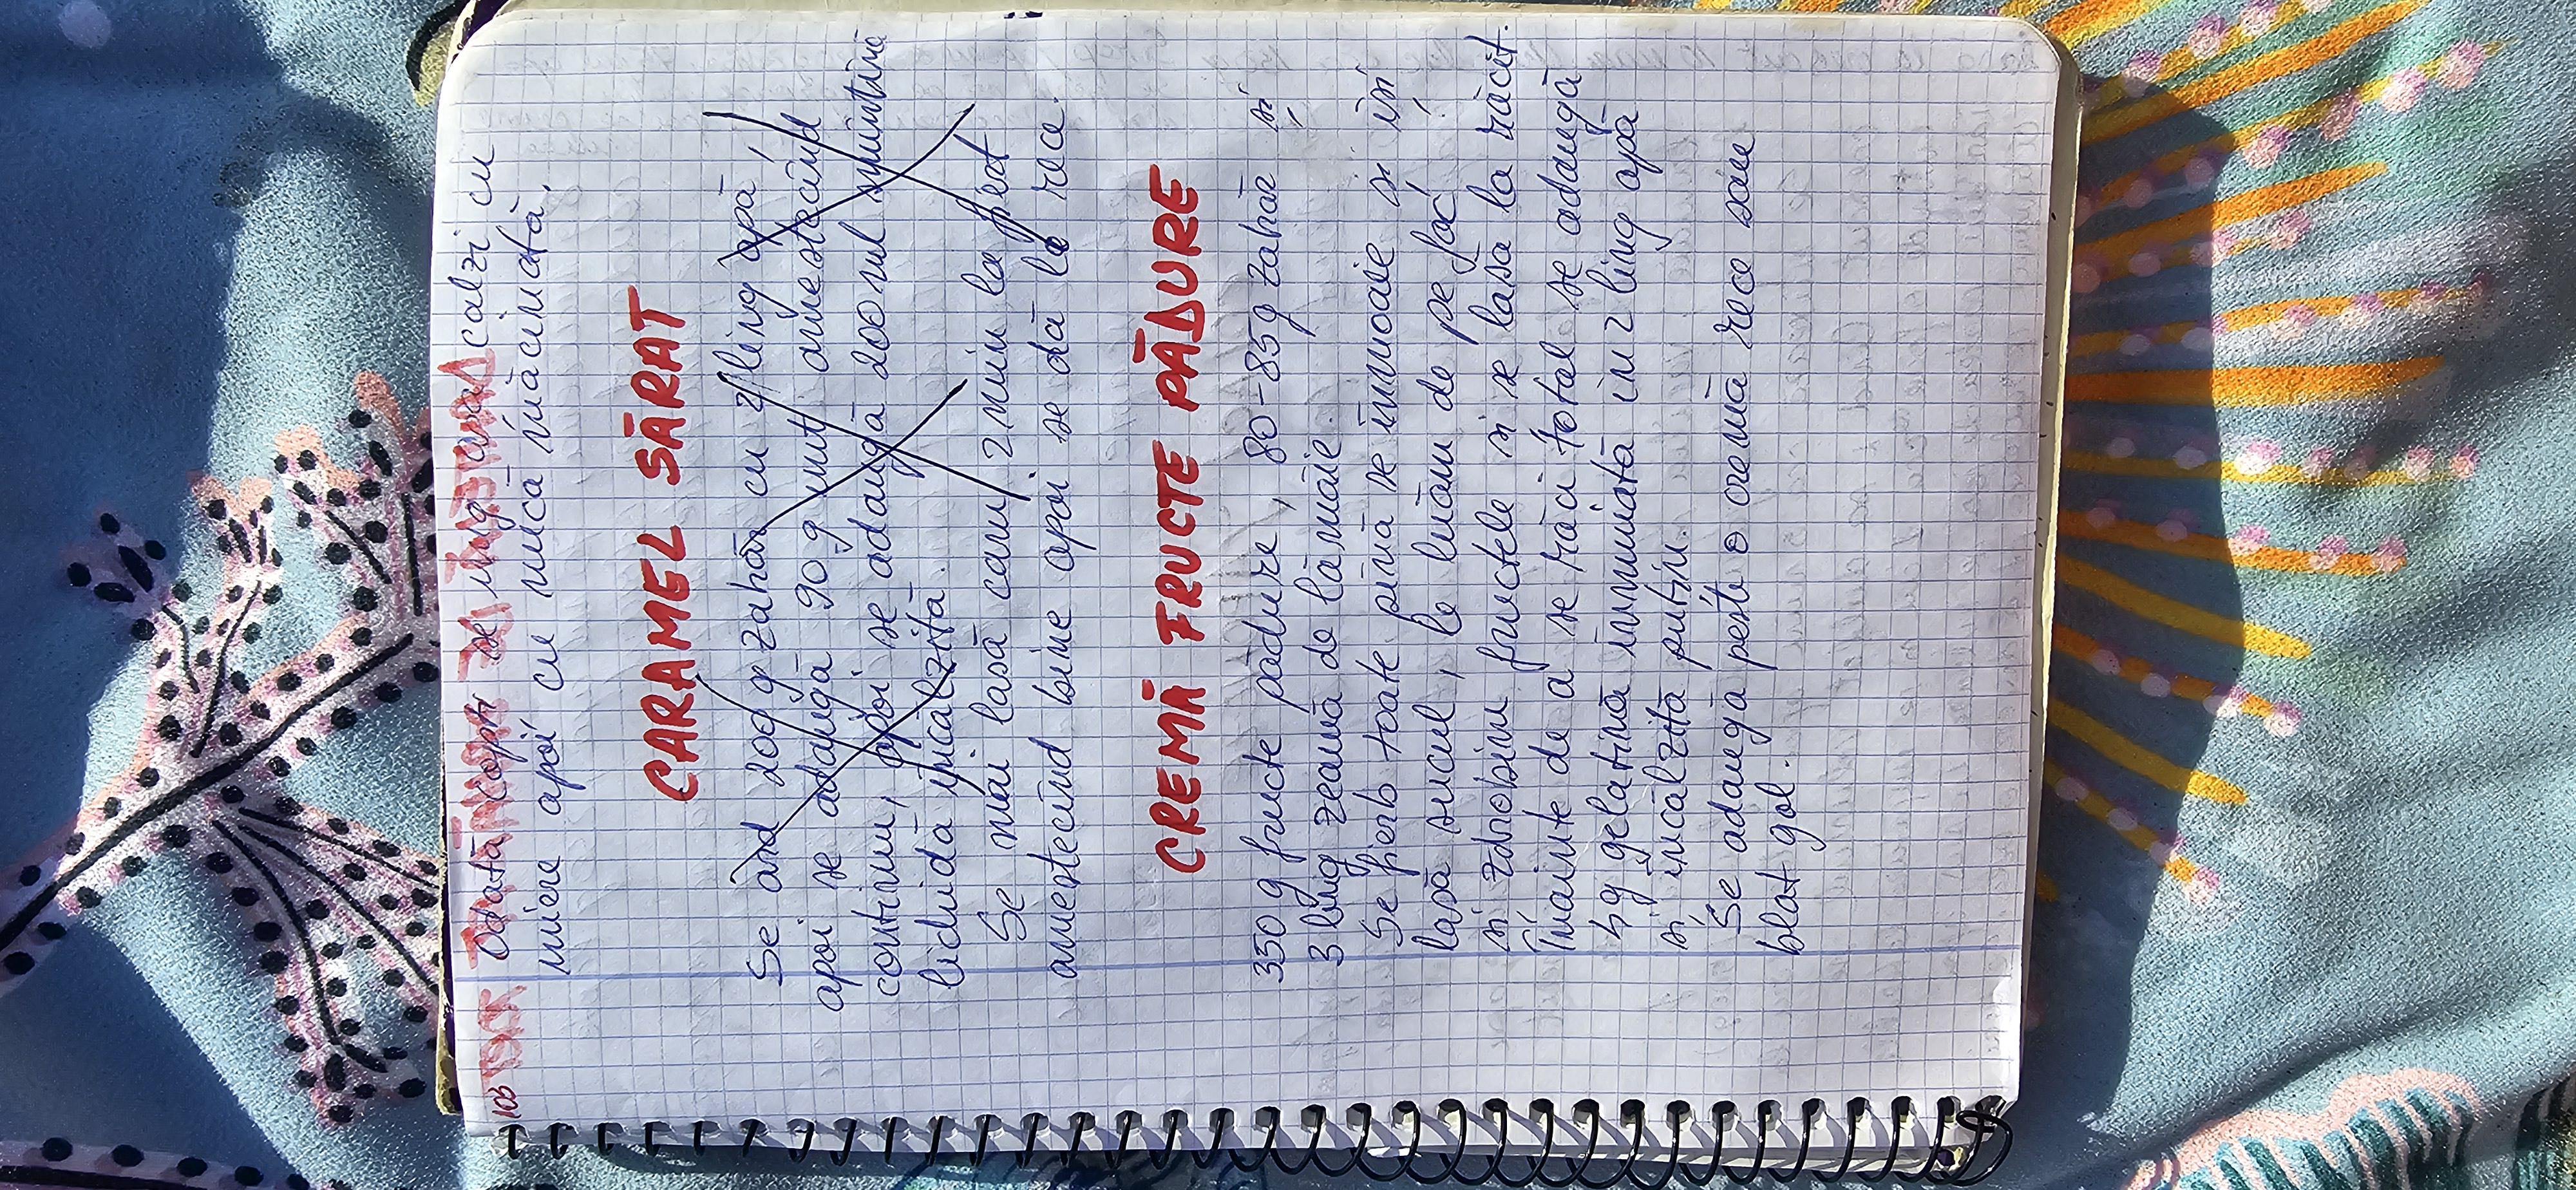 103
Odată copți se ung așa calzi cu
miere apoi cu nucă măcinată.
CARAMEL SĂRAT
Se ard 200 g zahăr cu 2 ling apă,
apoi se adaugă 90 g unt amestecînd
continuu, apoi se adaugă 200 ml smîntînă
lichidă încălzită.
Se mai lasă cam 2 min la fiert
amestecînd bine apoi se dă la rece.
CREMĂ FRUCTE PĂDURE
350 g fructe pădure, 80-85g zahăr și
3 ling zeamă de lămâie.
Se fierb toate pînă se înmoaie și își
lasă sucul, le luăm de pe foc
și zdrobim fructele și se lasă la răcit.
Înainte de a se răci total se adaugă
5g gelatină înmuiată în 2 ling apă
și încălzită puțin.
Se adaugă peste o cremă rece sau
blat gol.